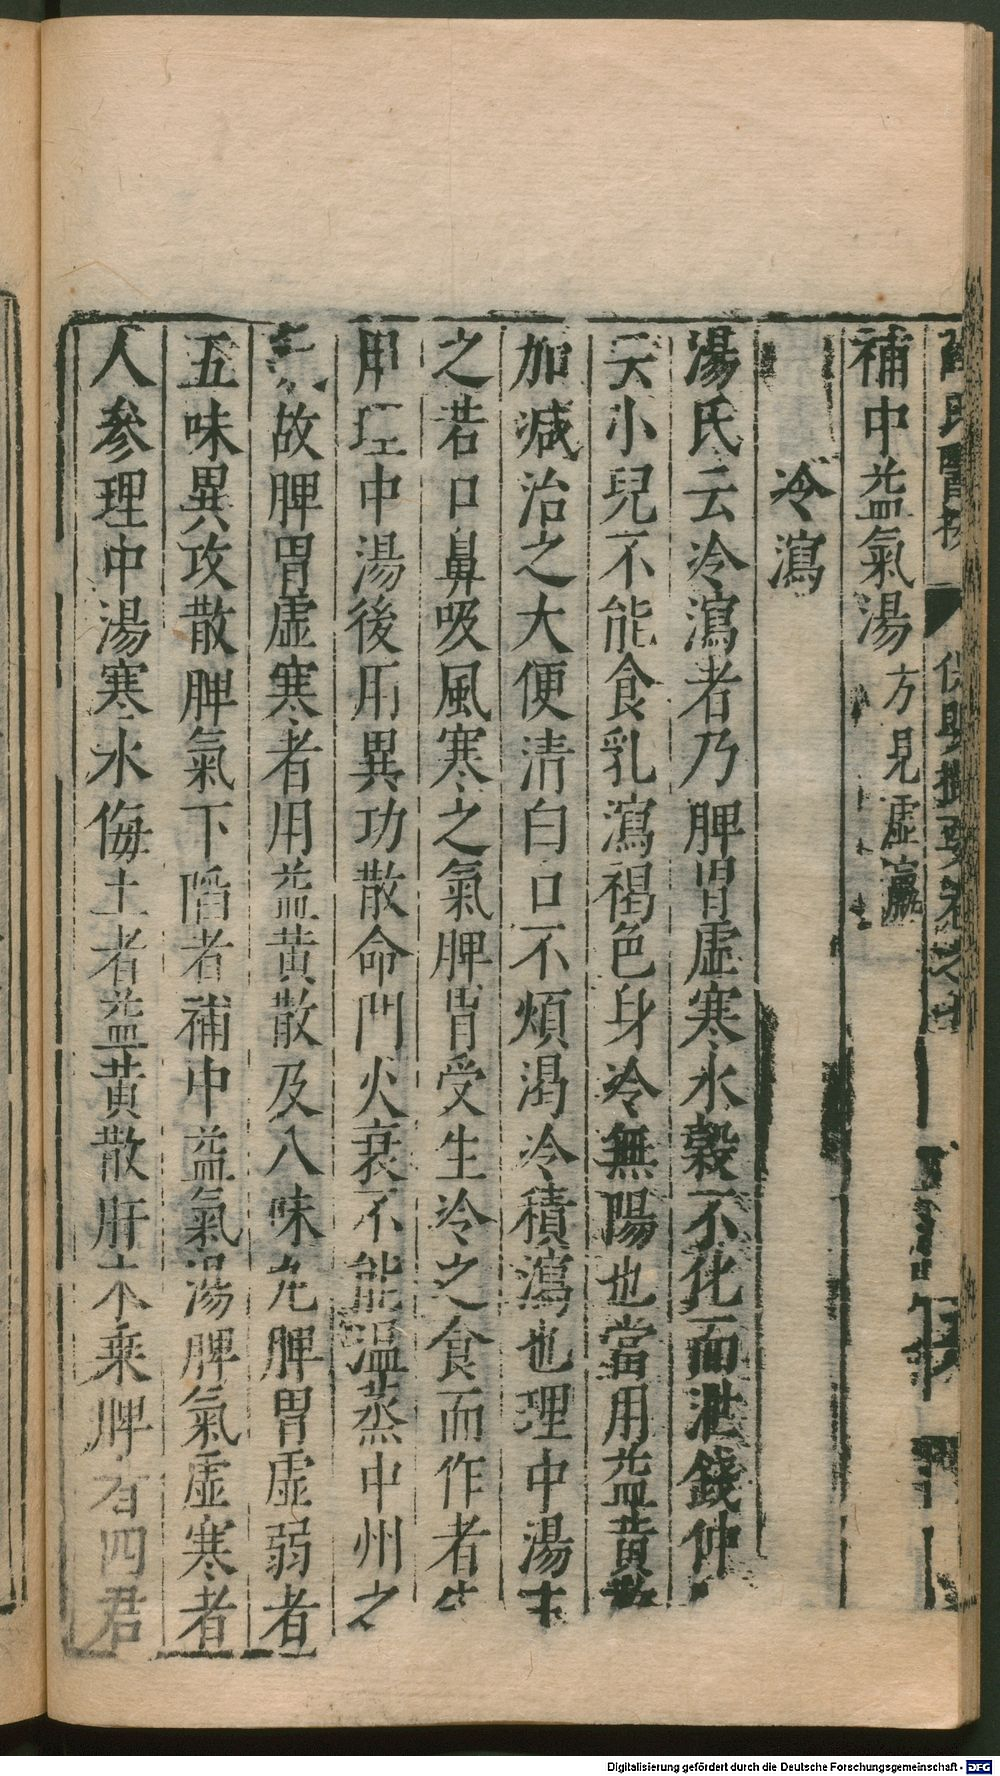 薛氏醫按 保嬰撮要卷之七
補中益氣湯方見虛羸
冷瀉
湯氏云冷瀉者乃脾胃虛寒水穀不化而泄錢仲
云小兒不能食乳瀉褐色身冷無陽也當用益黃散
加減治之大便清白口不煩渴冷積瀉也理中湯主
之若口鼻吸風寒之氣脾胃受生冷之食而作者先
用理中湯後用異功散命門火衰不能溫蒸中州之
氣故脾胃虛寒者用益黃散及八味丸脾胃虛弱者
五味異攻散脾氣下陷者補中益氣湯脾氣虛寒者
人參理中湯寒水侮土者益黃散肝木乘脾者四君
Digitalisierung gefördert durch die Deutsche Forschungsgemeinschaft - DFG